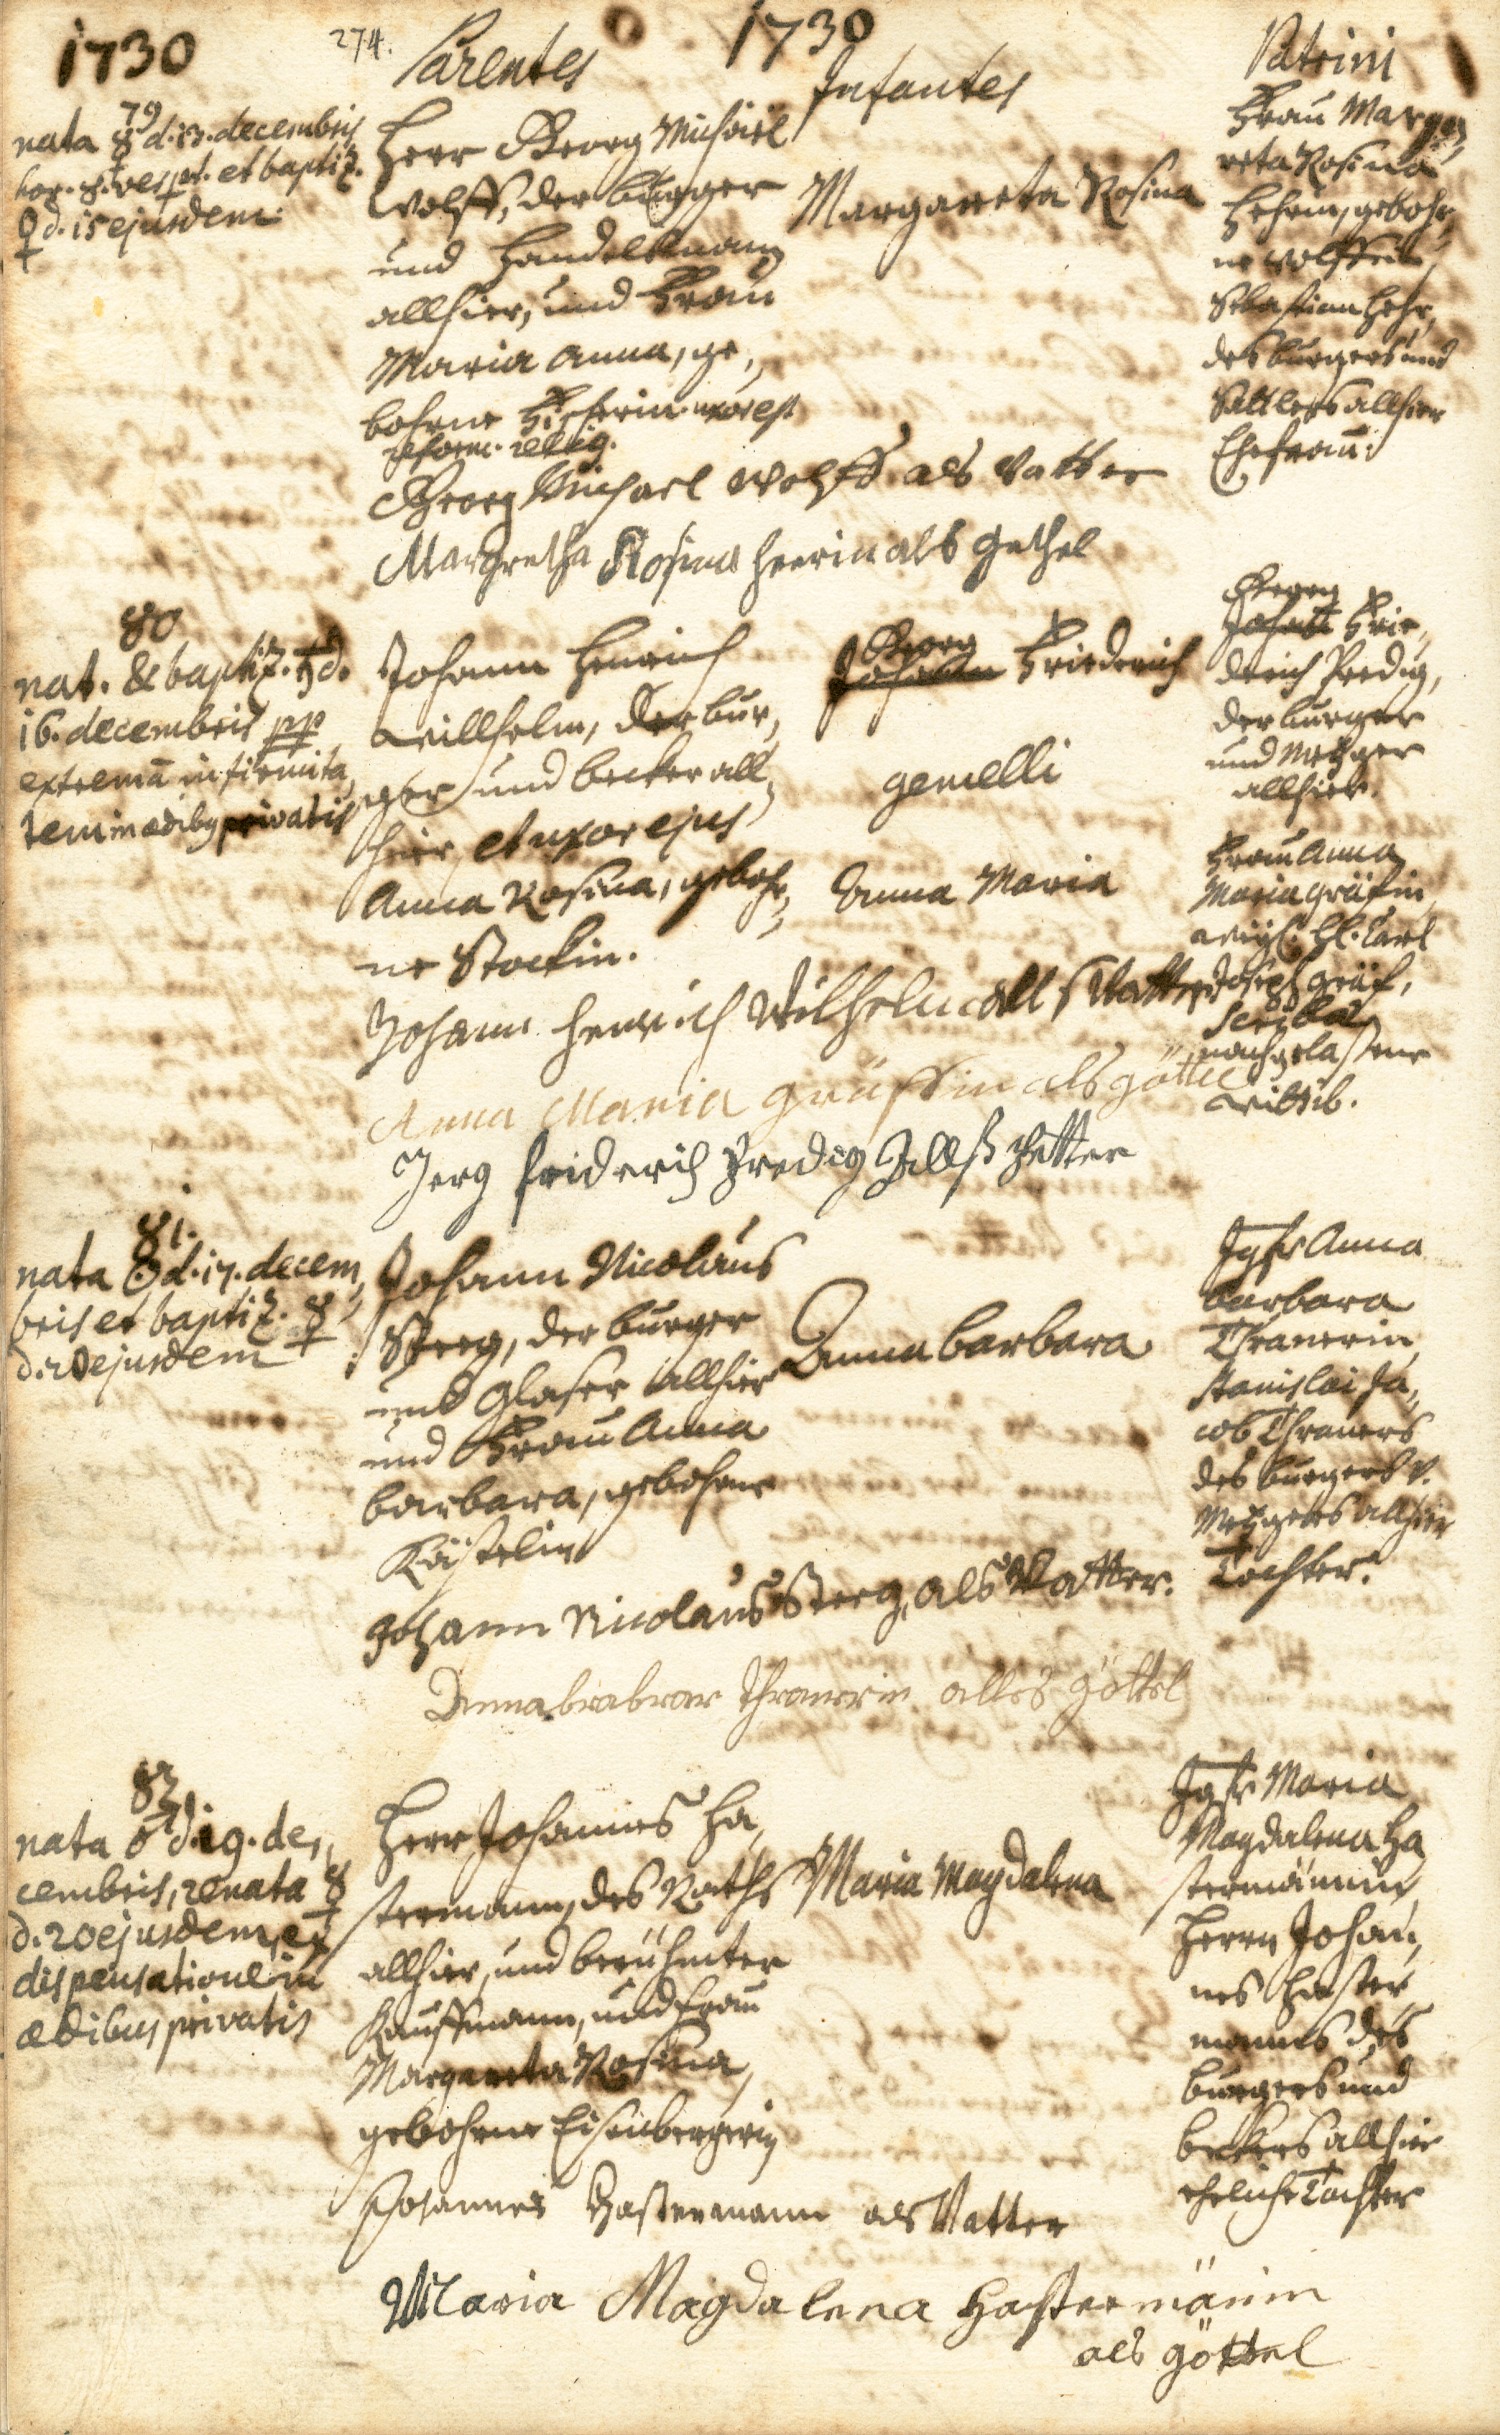 1730 274. Parentes 1730 Infantes Patrini
79
nata ☿ d. 13. decembris
hor. 8. vespt. et baptiz.
♀ d. 15 ejusdem.
Herr Georg Michael
Wolff, der burger
und Handelsmann
allhier, und Frau
Maria Anna, ge,,
bohrne uxor est
reform. relig.
Margareta Rosina
Frau Marga,,
reta Rosina
gebohr,,
ne Wolffin
Sebastian
des burgers und
Sattlers allhier
Ehefrau.
Georg Michael Wolff als Vatter
Margretha Rosina Heerin als gethel
80
nat. & baptiz. ♄ d.
16. decembris pp
extremā infirmita,,
tem in ædiby privatis
Johann Henrich
Willhelm, der bur,,
ger und becker all,,
hier et uxor ejus
Anna Rosina, gebohr,,
ne Stockin.
Georg
Johann Friederich
gemelli
Anna Maria
Georg
Johann Frie,,
derich Predig,
der burger
und Metzger
allhier.
Frau Anna
Maria Gräfin
weyl. H. Carl
Joseph Gräf,
Scribā
nachgelassene
Wittib.
Johann Henrich Wilhelm alls Vatter
Anna Maria Gräffin als göttel
Jerg Friderich Predig Allß Petter
81.
nata ☉ d. 17. decem,,
bris et baptiz. ☿
d. 20 ejusdem
Johann Nicolaus
Steeg, der burger
und Glaser allhier
und Frau Anna
barbara, gebohrne
Kästelin
Anna barbara
Jgfr Anna
barbara
Thranerin
Stanislai Ja,,
cob Thraners
des burgers v.
Metzgers allhier
Tochter.
Johann Nicolaus Steeg, als Vatter.
Anna brabrar Thranerin alles göttel
82
nata ♂ d. 19. de,,
cembris, renata ☿
d. 20 ejusdem, ex
dispensatione in
ædibus privatis
Herr Johannes Ha,,
stermann, des Raths
allhier, und berühmter
Kauffmann, und Frau
Margareta Rosina,
gebohrne Eisenbergerin
Maria Magdalena
Jgfr Maria
Magdalena Ha
stermännin
Herrn Johan,,
nes Haster,,
manns des
burgers und
beckers allhier
eheliche Tochter
Johannes Hastermann als Vatter
Maria Magdalena Hastermänin
als göttel